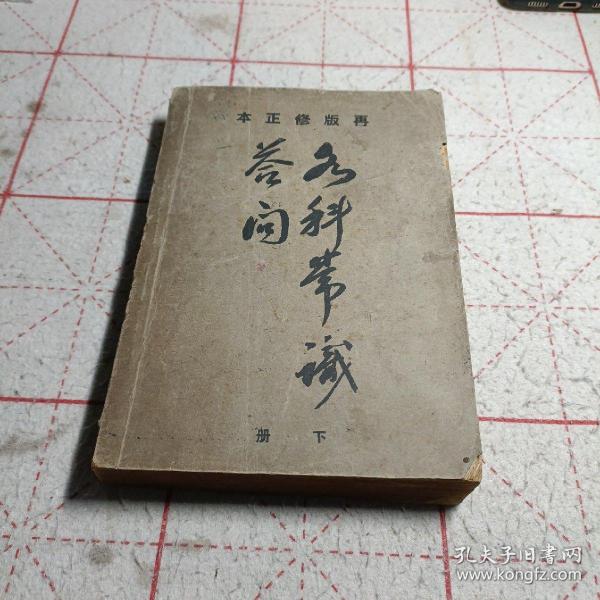 再版修正本
各科常識
答问
下册
孔夫子旧书网
www.kongfz.com